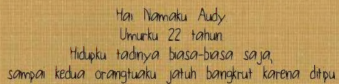 Hai Namaku Audy
Umurku 22 tahun
Hidupku tadinya biasa-biasa saja,
sampai kedua orangtuaku jatuh bangkrut karena ditpu